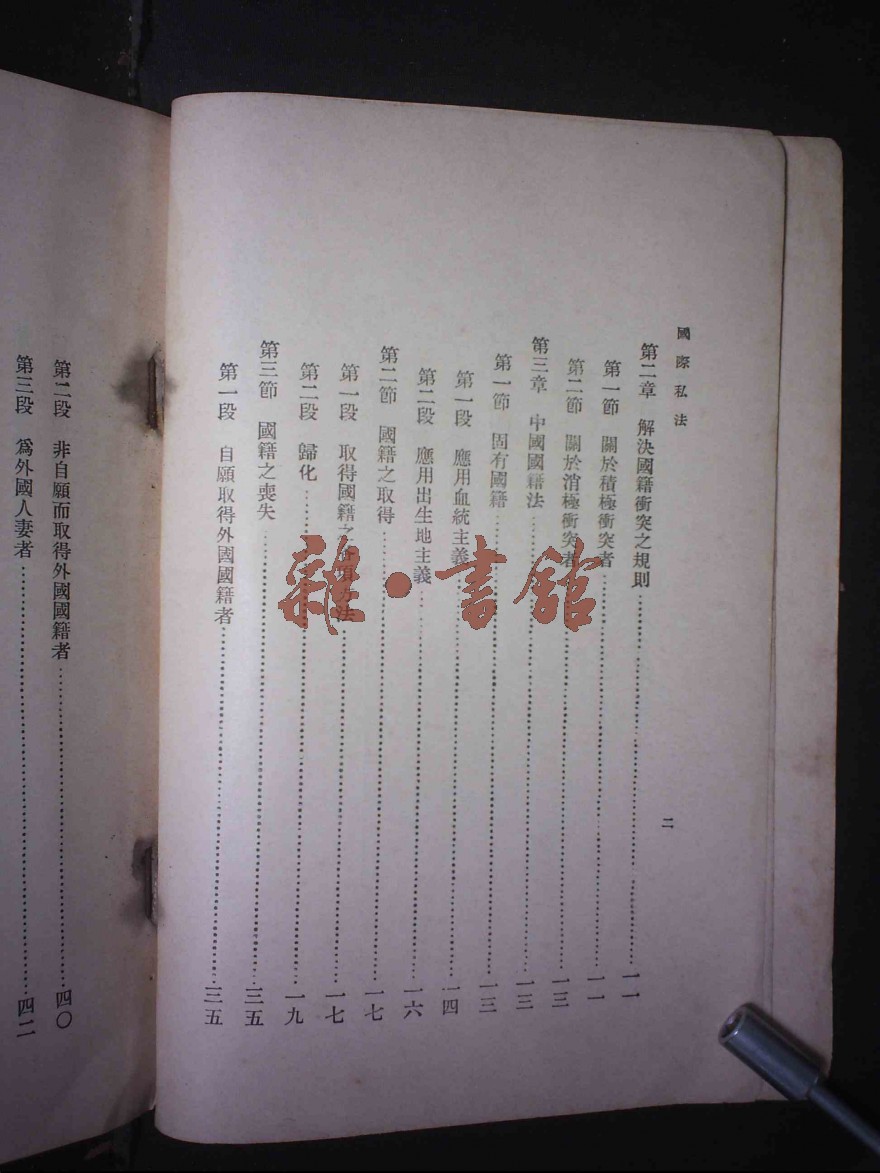 國際私法
第二章　解決國籍衝突之規則…………一一
第一節　關於積極衝突者…………一一
第二節　關於消極衝突者…………一三
第三章　中國國籍法…………一三
第一節　固有國籍…………一三
第一段　應用血統主義…………一四
第二段　應用出生地主義…………一六
第二節　國籍之取得…………一七
第一段　取得國籍之各項方法…………一七
第二段　歸化…………一九
第三節　國籍之喪失…………三五
第一段　自願取得外國國籍者…………三五
二
第二段　非自願而取得外國國籍者…………四〇
第三段　爲外國人妻者…………四二
雜·書館